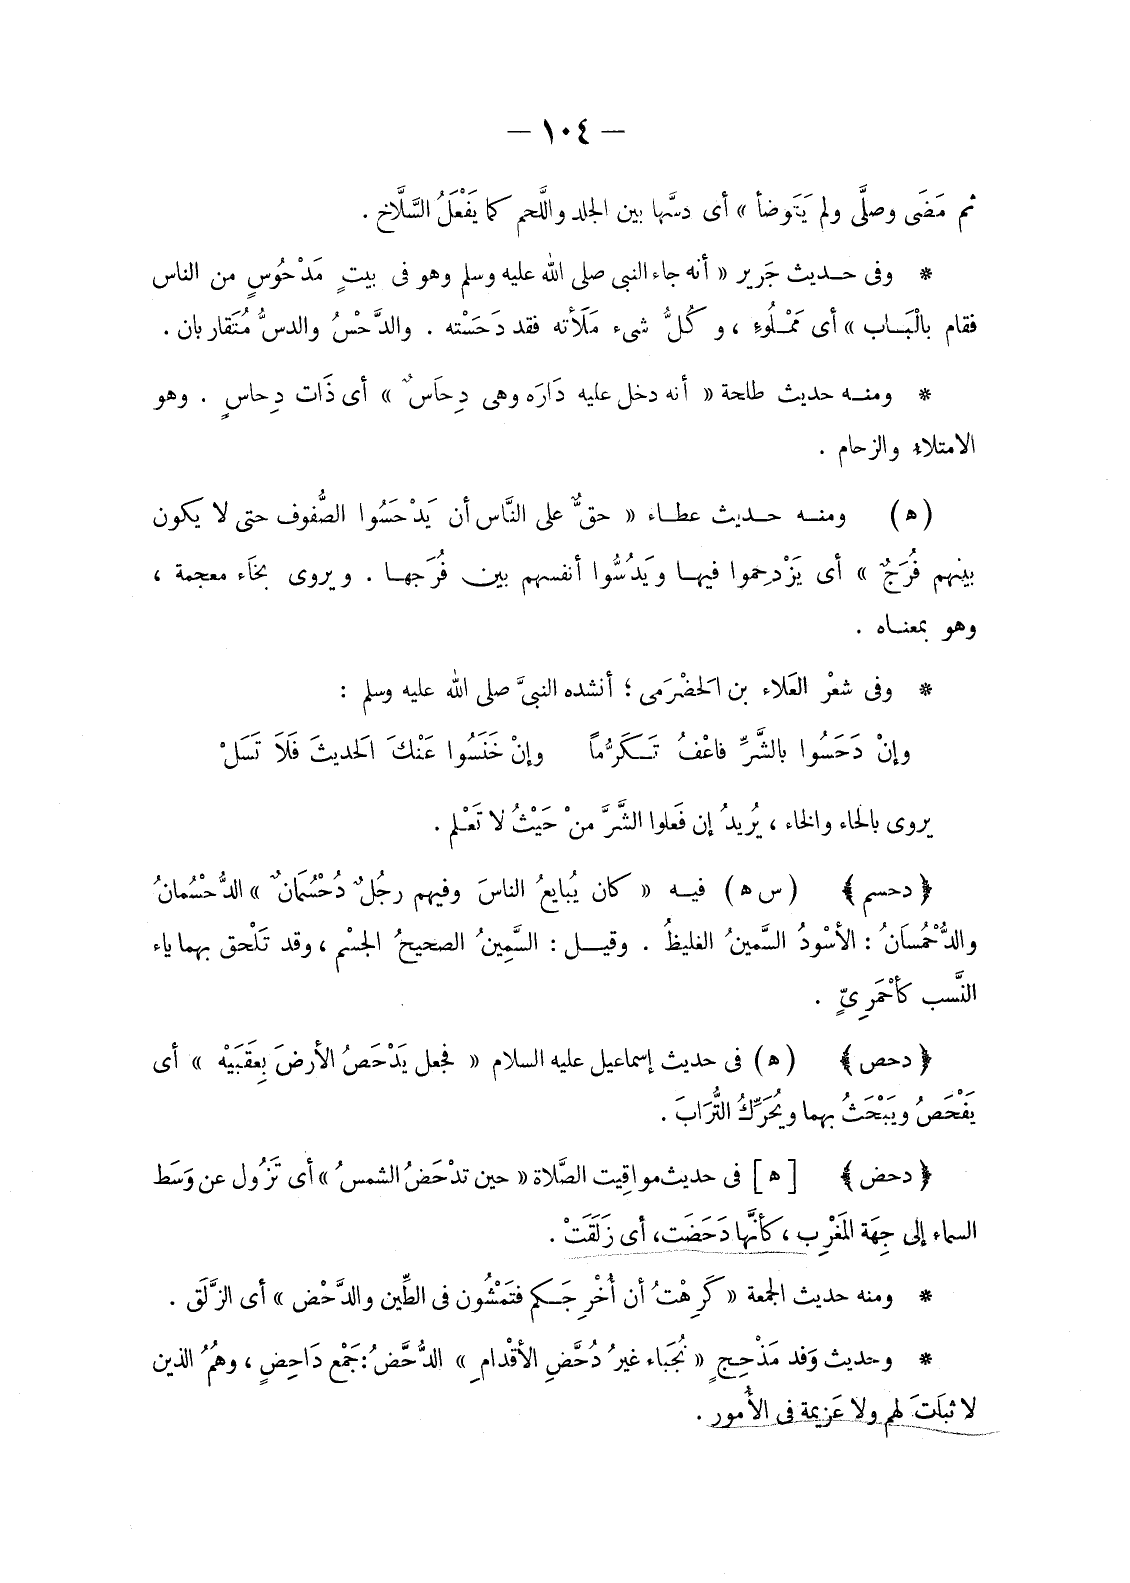 — ١٠٤ —
ثم مَضَى وصلَّى ولم يَتَوضأ » أى دسَّها بين الجلد واللَّحم كما يَفْعَلُ السَّلَّاخ .
* وفى حديث جَرير « أنه جاء النبى صلى الله عليه وسلم وهو فى بيتٍ مَدْحُوسٍ من الناس
فقام بالْبَاب » أى مَمْلُوءٍ ، و كُلُّ شىء مَلَأته فقد دَحَسْته . والدَّحْسُ والدسُّ مُتَقاربان .
* ومنه حديث طلحة « أنه دخل عليه دَارَه وهى دِحاَسٌ » أى ذَات دِحاسٍ . وهو
الامتلاء والزحام .
(ه) ومنه حديث عطاء « حقٌّ على النَّاس أن يَدْحَسُوا الصُّفوف حتى لا يكون
بينهم فُرَجٌ » أى يَزْدحِموا فيها ويَدُسُّوا أنفسهم بين فُرَجها . ويروى بخَاء معجمة ،
وهو بمعناه .
* وفى شعْر العَلاء بن الحَضْرَمى ؛ أنشده النبىَّ صلى الله عليه وسلم :
وإنْ دَحَسُوا بالشَّرِّ فاعْفُ تَكَرُّماً وإنْ خَنَسُوا عَنْكَ الحَديثَ فَلَا تَسَلْ
يروى بالحَاء والخاء ، يُريدُ إن فَعلوا الشَّرَّ منْ حَيْثُ لا تَعْلم .
﴿ دحسم ﴾ ( س ه ) فيه « كان يُبايعُ الناسَ وفيهم رجُلٌ دُحْسُمَانٌ » الدُّحْسُمانُ
والدُّحْمُسَانُ : الأسْودُ السَّمينُ الغليظُ . وقيل : السَّمِينُ الصحيحُ الجسْم ، وقد تَلْحق بهما ياء
النَّسب كأحْمَرِىٍّ .
﴿ دحص ﴾ (ه) فى حديث إسماعيل عليه السلام « فجعل يَدْحَصُ الأرضَ بِعَقَبَيْه » أى
يَفْحَصُ ويَبْحَثُ بهما ويُحَرِّكُ التُّرَابَ .
﴿ دحض ﴾ [ ه ] فى حديث مواقِيت الصَّلاة « حين تدْحَضُ الشمسُ » أى تَزُول عن وَسَط
السماء إلى جِهَة المَغْرِب ، كأنَّها دَحَضَت، أى زَلَقَتْ .
* ومنه حديث الجمعة « كَرِهْتُ أن أُخْرِجَكم فتَمْشُون فى الطِّين والدَّحْض » أى الزَّلَق .
* وحديث وَفد مَذْحِجٍ « نُجَباء غيرُ دُحَّضِ الأقْدامِ » الدُّحَّضُ: جَمْع دَاحِضٍ ، وهُمُ الذين
لا ثباَتَ لهم ولا عَزِيمة فى الأُمور .